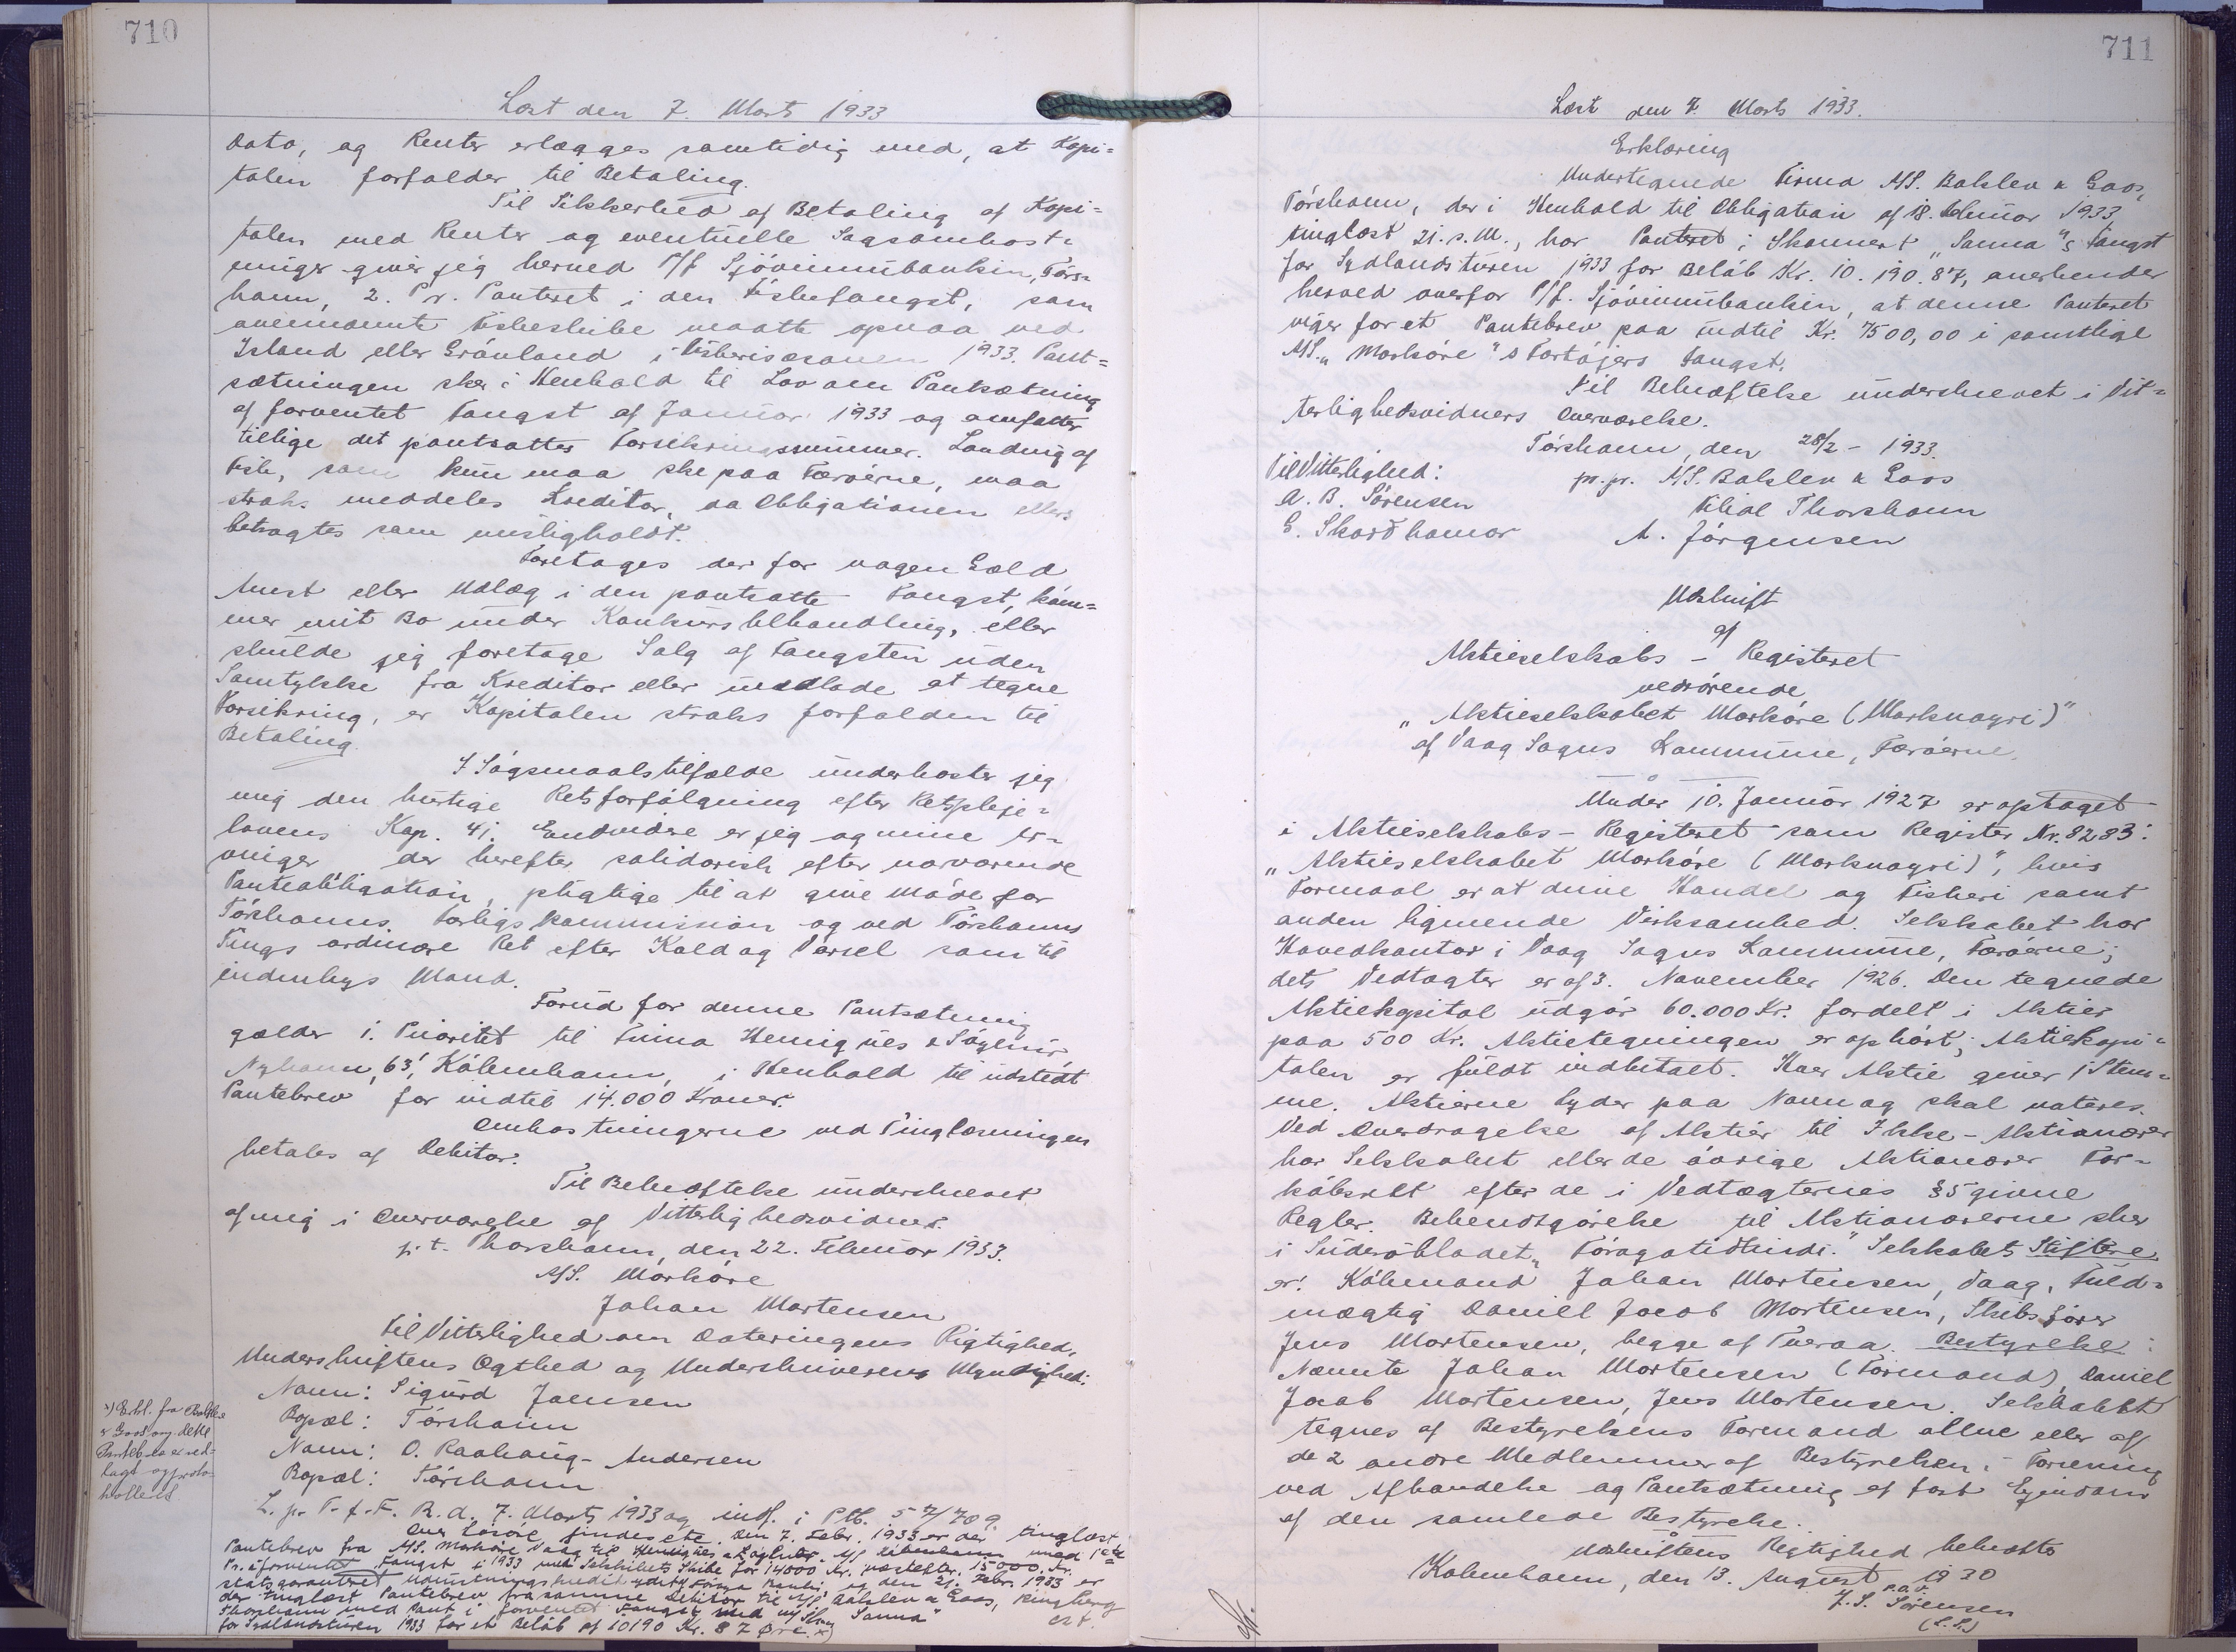 710
Læst den 7. Marts 1933
Dato, og Renter erlægges samtidig med, at Kapi=
talen forfalder til Betaling.
Til Sikkerhed af Betaling af Kapi=
talen med Renter og eventuelle Sagsomkost=
ninger giver jeg herved P/f Sjóvinnubankin, Tórs=
havn, 2. Pr. Panteret i den Fiskefangst, som
ovennævnte Fiskeskibe maatte opnaa ved
Island eller Grønland i Fiskerisæsonen 1933. Pant=
sætningen sker i Henhold til Lov om Pantsætning
af forventet Fangst af Januar 1933 og omfatter
tillige det pantsattes Forsikringssummer. Landing af
Fisk, som kun maa ske paa Færøerne, maa
straks meddeles Kreditor, da Obligationen ellers
betragtes som misligholdt.
Foretages der for nogen Gæld
Arrest eller Udlæg i den pantsatte Fangst, kom=
mer mit Bo under Konkursbehandling, eller
skulde jeg foretage Salg af Fangsten uden
Samtykke fra Kreditor eller undlade at tegne
Forsikring, er Kapitalen straks forfalden til
Betaling.
I Søgsmaalstilfælde underkaster jeg
mig den hurtige Retsforfølgning efter Retspleje=
lovens Kap. 41. Endvidere er jeg og mine Ar=
vinger der herefter solidarisk efter nærværende
Panteobligation, pligtige til at give Møde for
Tórshavns Forligskommission og ved Tórshavns
Tings ordinære Ret efter Kald og Varsel som til
indenbys Mand.
Forud for denne Pantsætning
gælder 1. Prioritet til Firma Henriques & Løglmir
Nyhavn, 63, København, i Henhold til udstedt
Pantebrev for indtil 14.000 Kroner.
Omkostningerne ved Tinglæsningen
betales af Debitor.
Til Bekræftelse underskrevet
af mig i Overværelse af Vitterlighedsvidner.
p.t. Thorshavn, den 22. Februar 1933.
A/S. Mørkøre
Johan Mortensen
Til Vitterlighed om Dateringens Rigtighed,
Underskriftens Ægthed og Underskriverens Myndighed:
Navn: Sigurd Joensen
Bopæl: Tórshavn
Navn: O. Raahauge-Andersen
Bopæl: Tórshavn
x) Erkl. fra Balslev
& Goos ang. dette
Pantebrev er ved-
lagt og proto-
kolleret
L. p. T. f. F. R. d. 7. Marts 1933 og indf. i Ptb. 57/709.
Over Løsøre findes etc. Den 7. Febr. 1933 er der tinglæst
Pantebrev fra A/S. Mørkøre Vaag til Henriques & Løglmir A/S København med 1ste
Pr. i forventet Fangst i 1933 med Selskabets Skibe for 14000 Kr. næstefter 15000 Kr.
statsgaranteret Udrustningskredit ydet af Føroya Banki, og den 21. Febr. 1933 er
der tinglæst Pantebrev fra samme Debitor til A/S Balslev & Goos, Ringberg
Thorshavn med Pant i forventet Fangst med M/Sk. "Sanna"
for Sydlandsturen 1933 for et Beløb af 10190 Kr. 87 Øre x) est.
711
Læst den 7. Marts 1933.
Erklæring
Undertegnede Firma A/S. Balslev & Goos,
Tórshavn, der i Henhold til Obligation af 18. Februar 1933,
tinglæst 21. s.M., har Panteret i Skonnert "Sanna"s Fangst
for Sydlandsturen 1933 for Beløb Kr. 10.190.87, anerkender
herved overfor P/f. Sjóvinnubankin, at denne Panteret
viger for et Pantebrev paa indtil Kr. 7500,00 i samtlige
A/S. "Mørkøre"s Fartøjers Fangst.
Til Bekræftelse underskrevet i Vit=
terlighedsvidners Overværelse.
Tórshavn, den 28/2 - 1933.
Til Vitterlighed: pr. pr. A/S. Balslev & Goos
A. B. Sørensen Filial Thorshavn
E. Skarðhamar A. Jørgensen
Udskrift
af
Aktieselskabs - Registeret
vedrørende
"Aktieselskabet Mørkøre (Marknoyri)"
af Vaag Sogns Kommune, Færøerne.
Under 10. Januar 1927 er optaget
i Aktieselskabs - Registeret som Register Nr. 8283:
"Aktieselskabet Mørkøre (Marknoyri)", hvis
Formaal er at drive Handel og Fiskeri samt
anden lignende Virksomhed. Selskabet har
Hovedkontor i Vaag Sogns Kommune, Færøerne;
dets Vedtægter er af 3. November 1926. Den tegnede
Aktiekapital udgør 60.000 Kr. fordelt i Aktier
paa 500 Kr. Aktietegningen er ophørt; Aktiekapi=
talen er fuldt indbetalt. Hver Aktie giver 1 Stem=
me. Aktierne lyder paa Navn og skal noteres.
Ved Overdragelse af Aktier til Ikke-Aktionærer
har Selskabet eller de øvrige Aktionærer For=
købsret efter de i Vedtægternes § 5 givne
Regler. Bekendtgørelse til Aktionærerne sker
i Suderøbladet "Föroyatidhindi." Selskabets Stiftere
er: Købmand Johan Mortensen, Vaag, Fuld=
mægtig Daniel Jacob Mortensen, Skibsfører
Jens Mortensen, begge af Tveraa. Bestyrelse:
Nævnte Johan Mortensen (Formand), Daniel
Jacob Mortensen, Jens Mortensen. Selskabet
tegnes af Bestyrelsens Formand alene eller af
de 2 andre Medlemmer af Bestyrelsen i Forening
ved Afhændelse og Pantsætning af fast Ejendom
af den samlede Bestyrelse.
Udskriftens Rigtighed bekræftes
København, den 13. August 1930
p.a.v.
J. S. Sørensen
(L.S.)